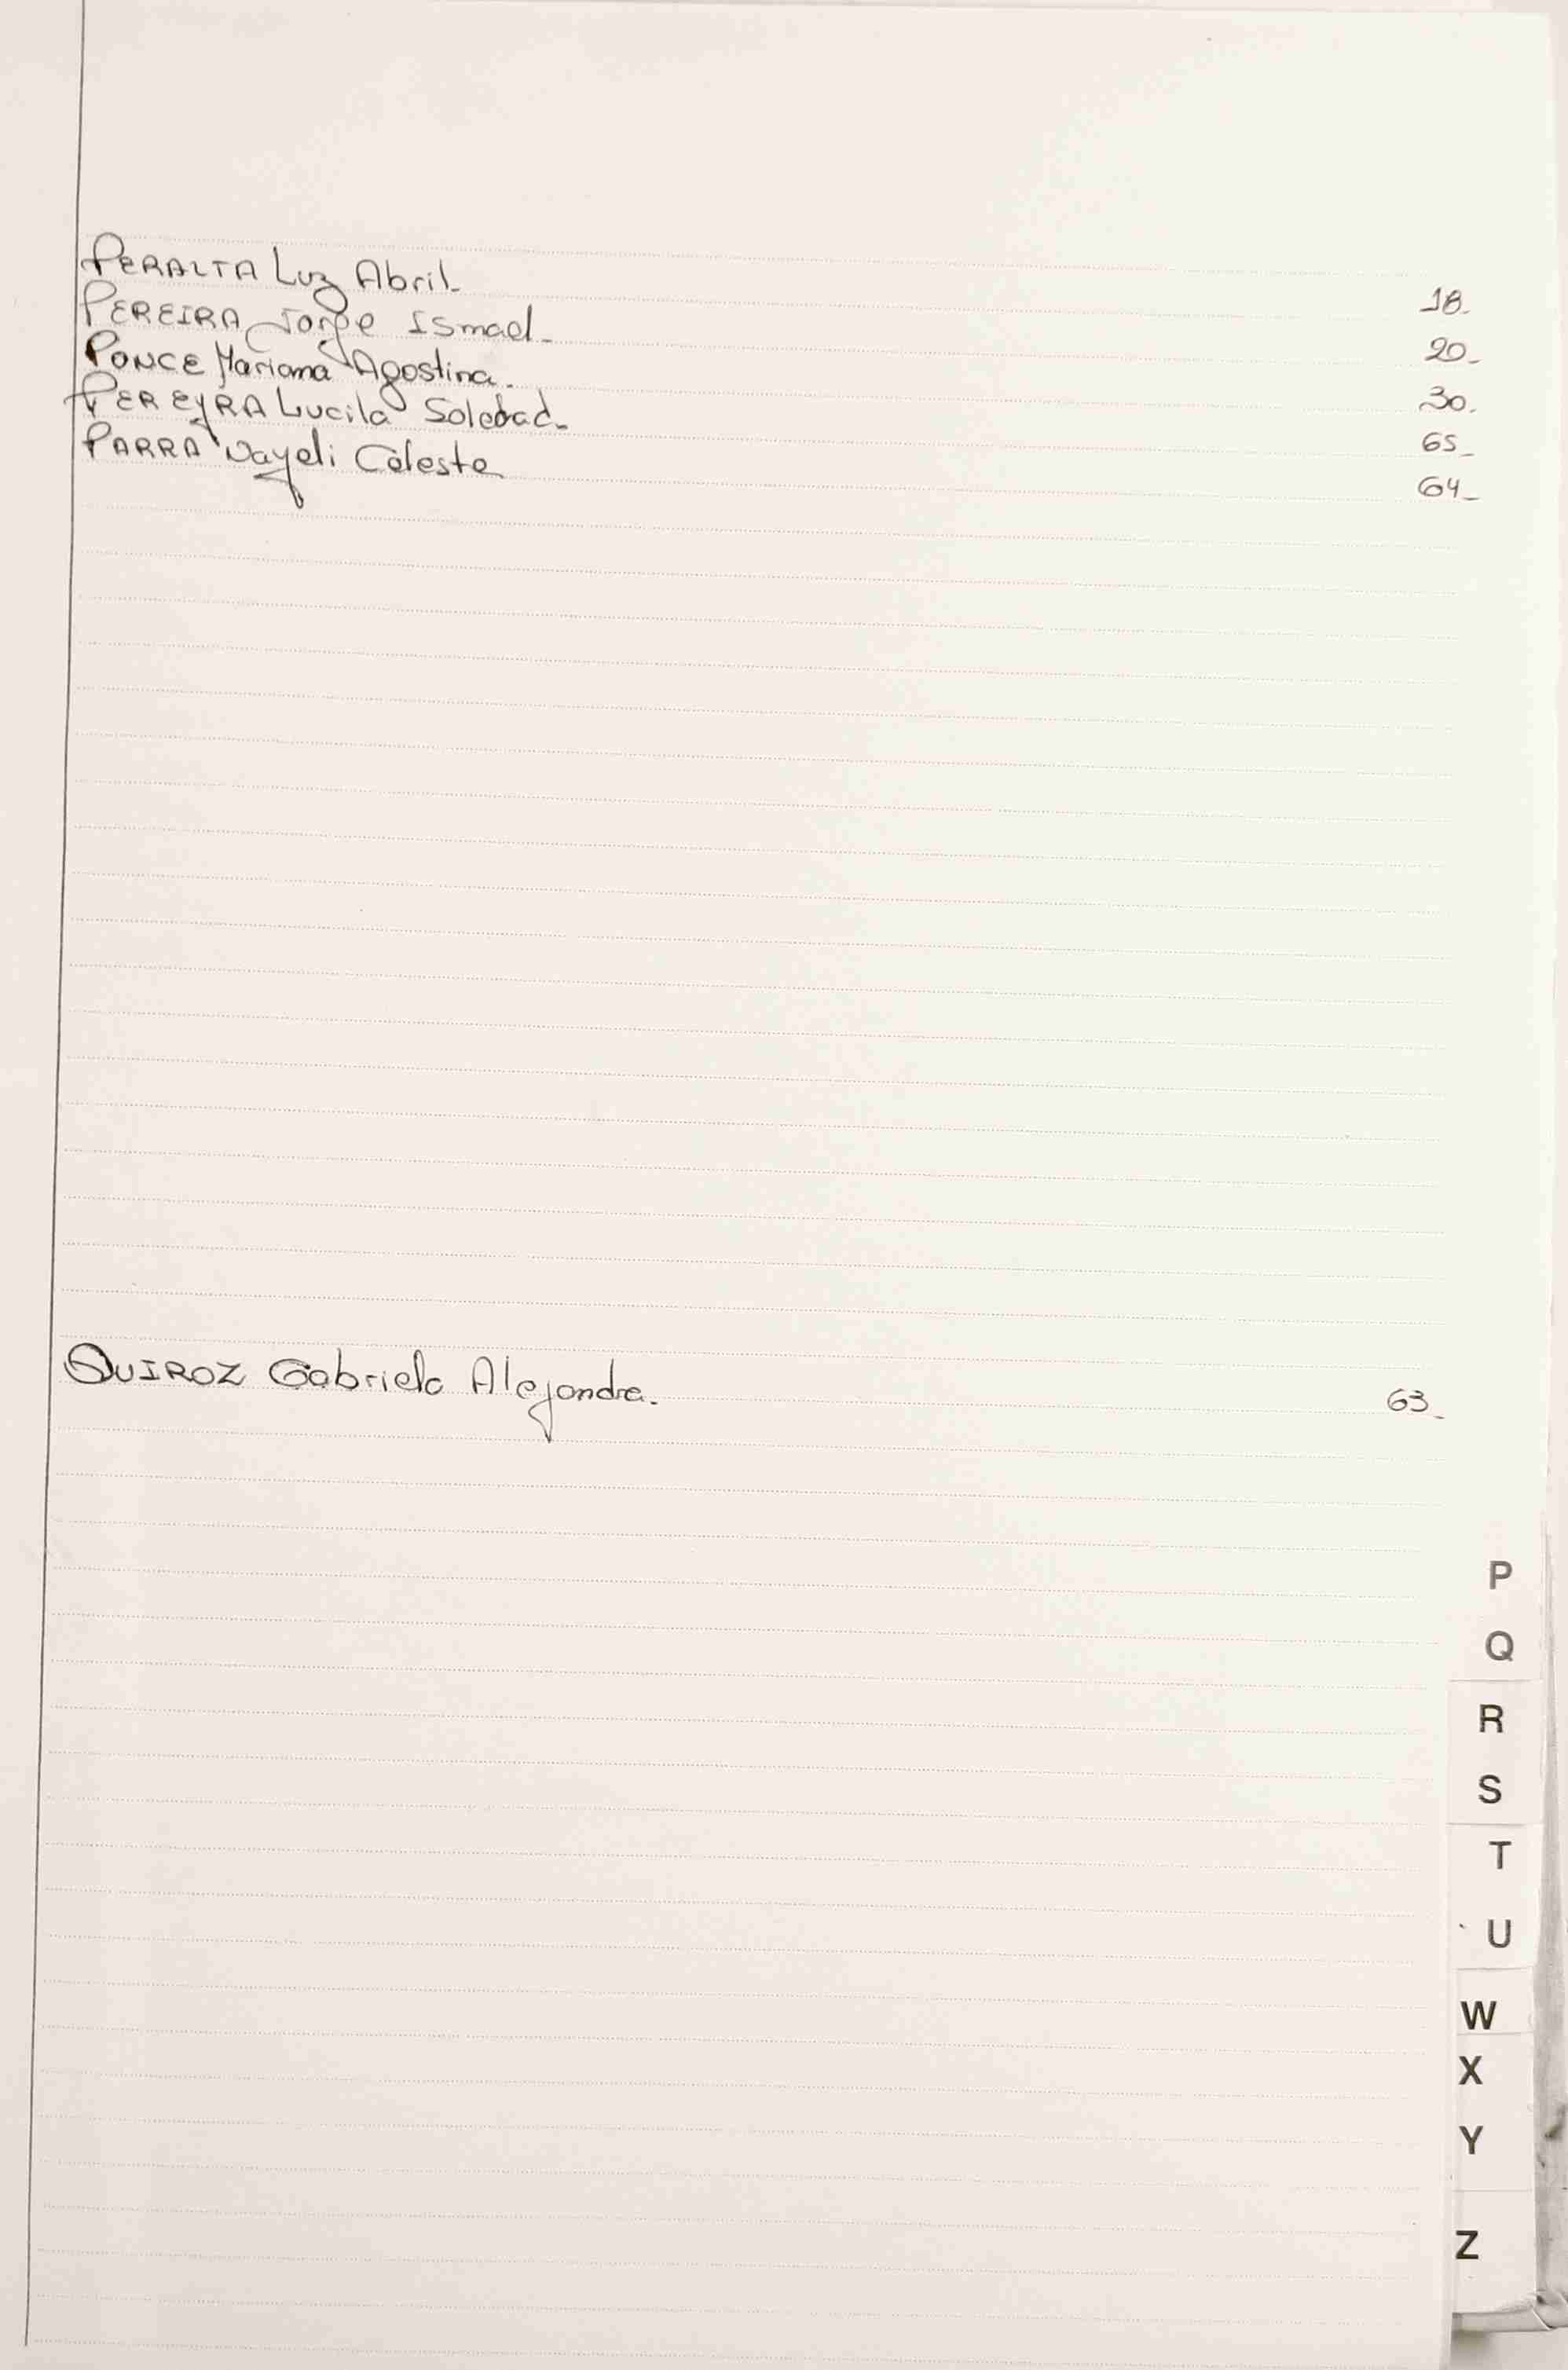 PERALTA Luz Abril_ 18_
PEREIRA Jorge Ismael_ 20_
PONCE Mariana Agostina. 30.
PEREYRA Lucila Soledad_ 65_
PARRA Nayeli Celeste 64_
QUIROZ Gabriela Alejandra. 63_
P
Q
R
S
T
U
W
X
Y
Z